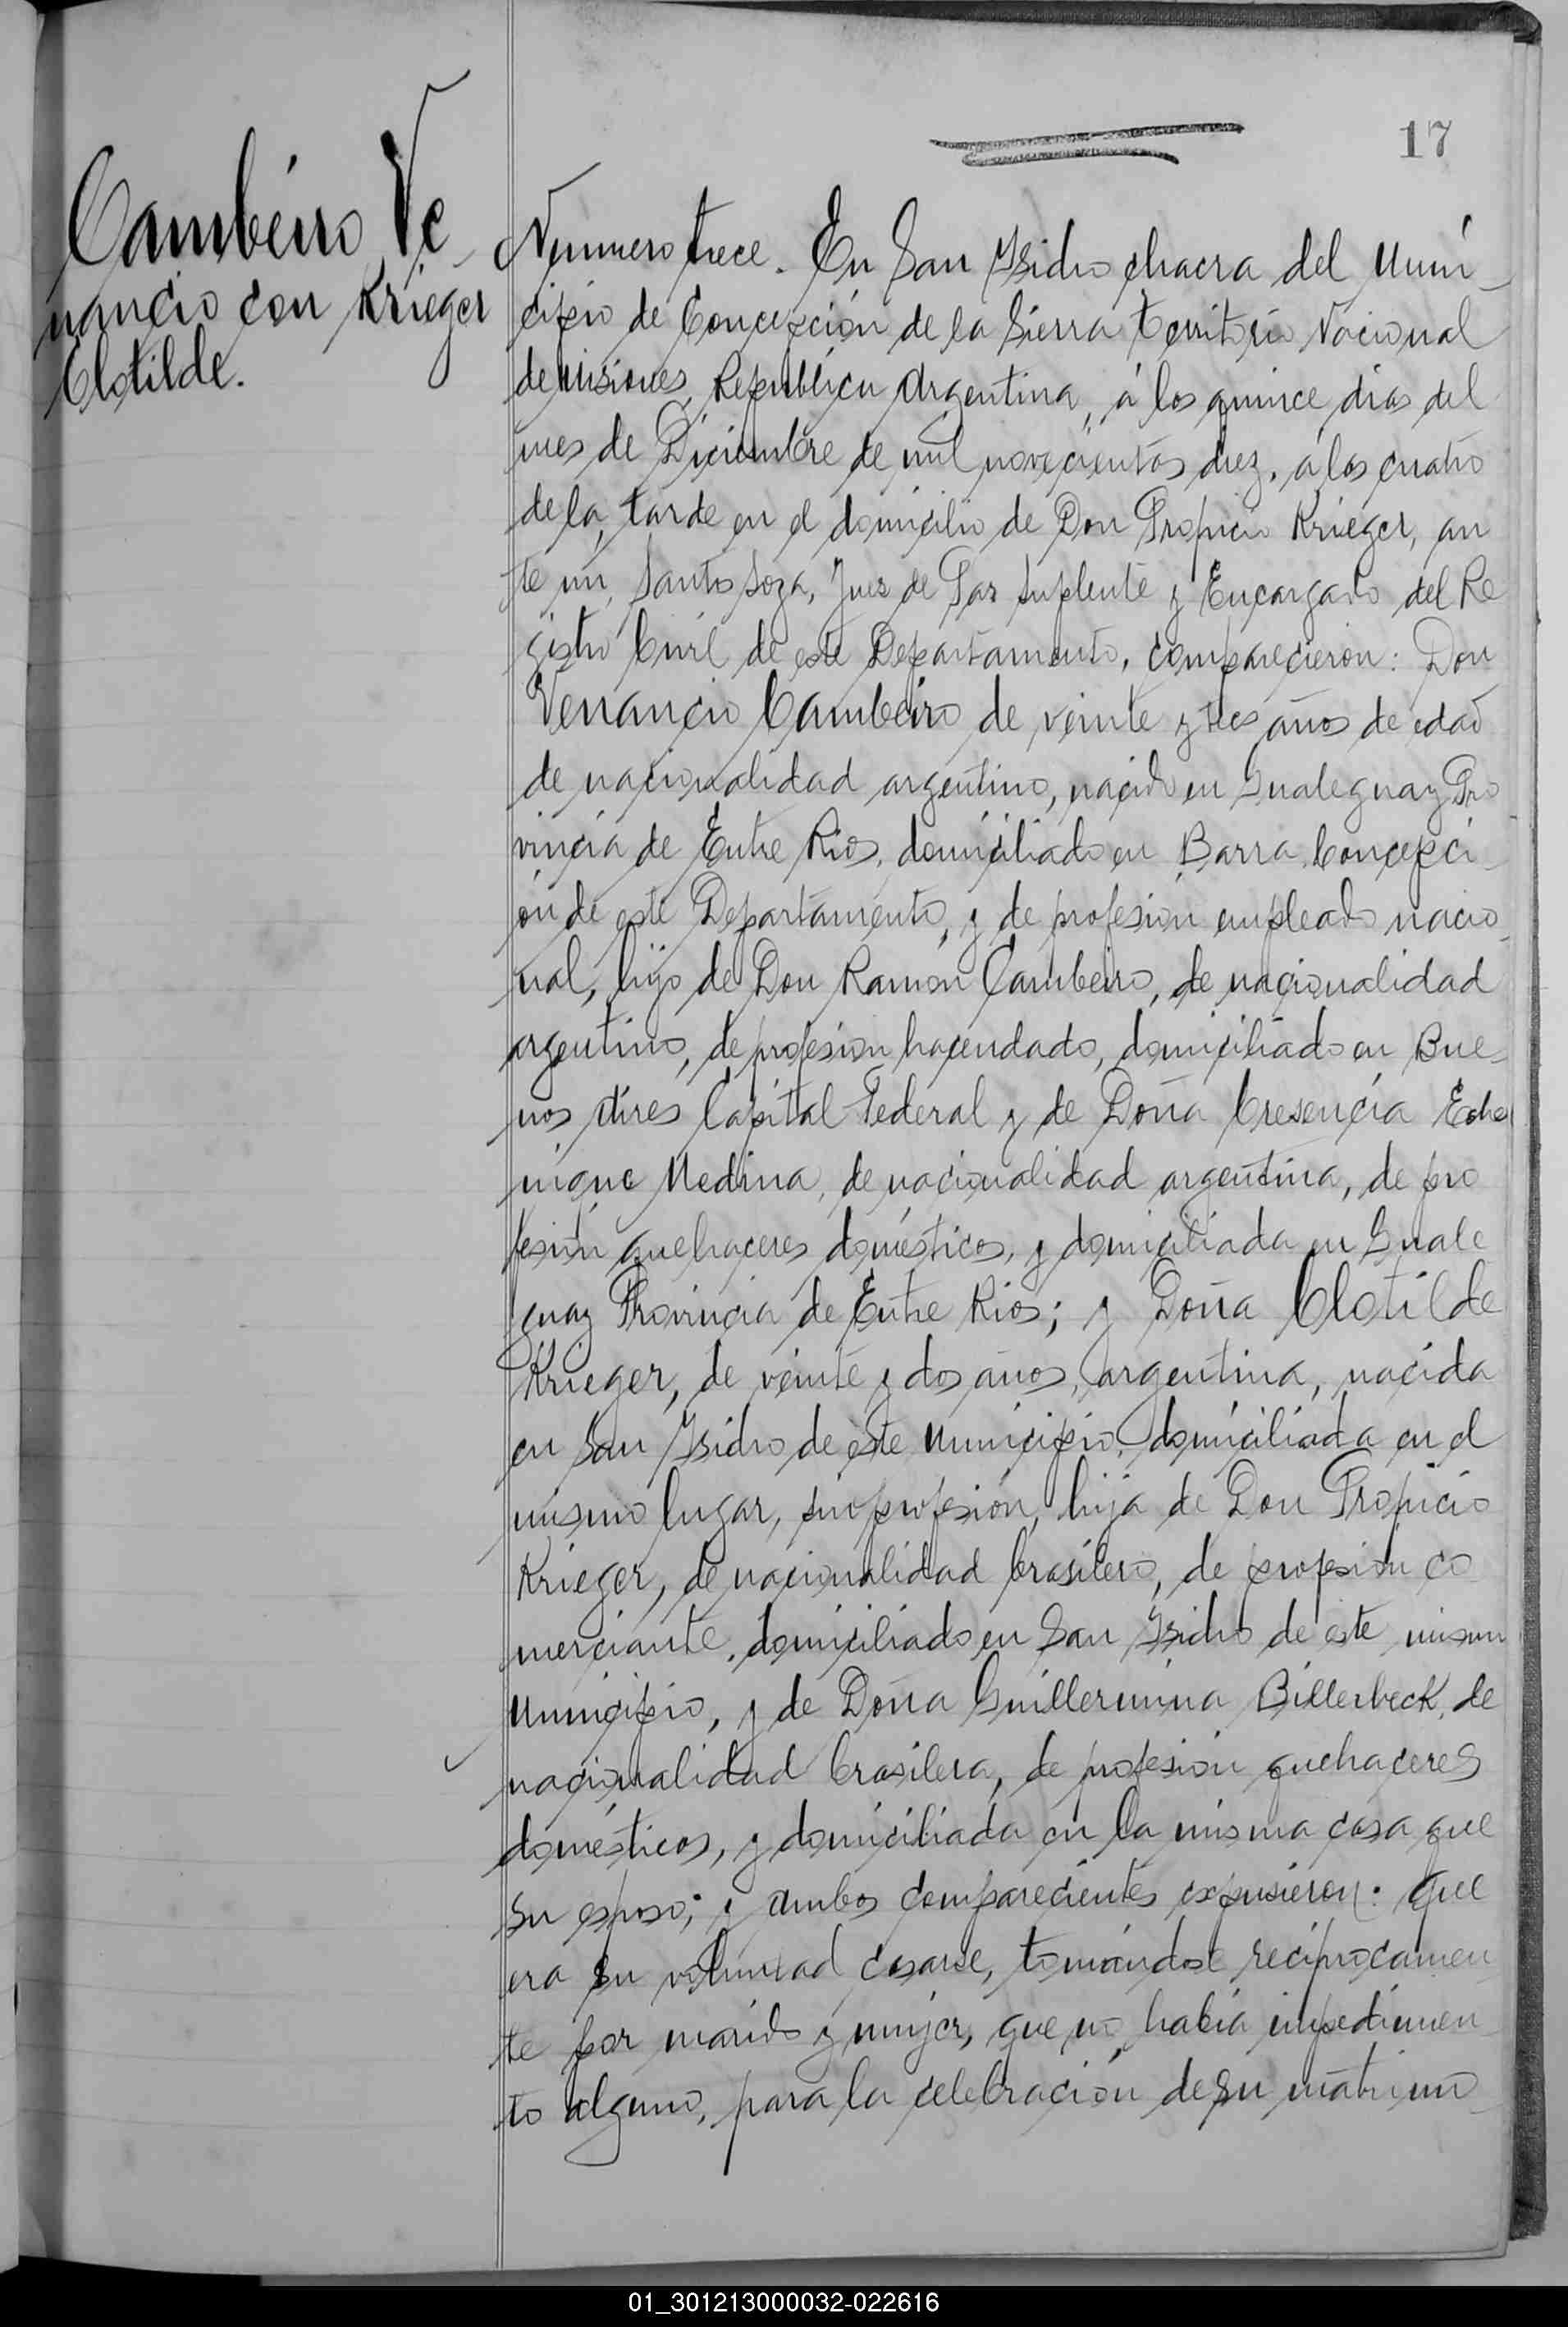 17
Cambeiro Ve
nancio con Krieger
Clotilde.
Numero trece. En San Ysidro chacra del Muni
cipio de Concepción de la Sierra Territorio Nacional
de Misiones, Republica Argentina, á los quince dias del
mes de Diciembre de mil novecientos diez, á las cuatro
de la tarde en el domicilio de Don Propicio Krieger, an
te mi, Santos Soza, Juez de Paz Suplente y Encargado del Re
gistro Civil de este Departamento, comparecieron: Don
Venancio Cambeiro de veinte y tres años de edad
de nacionalidad argentino, nacido en Gualeguay Pro
vincia de Entre Rios, domiciliado en Barra Concepci
ón de este Departamento, y de profesión empleado nacio
nal, hijo de Don Ramón Cambeiro, de nacionalidad
argentino, de profesion hacendado, domiciliado en Bue-
nos Aires Capital Federal y de Doña Cresencia Eche
nique Medina, de nacionalidad argentina, de pro
fesión quehaceres domésticos, y domiciliada en Guale
guay Provincia de Entre Rios; y Doña Clotilde
Krieger, de veinte y dos años, argentina, nacida
en San Ysidro de este Municipio, domiciliada en el
mismo lugar, sin profesión, hija de Don Propicio
Krieger, de nacionalidad brasilero, de profesión co
merciante, domiciliado en San Ysidro de este mismo
Municipio, y de Doña Guillermina Billerbeck, de
nacionalidad brasilera, de profesión quehaceres
domésticos, y domiciliada en la misma casa que
su esposo; y ambos comparecientes expusieron: que
era su voluntad casarse, tomándose reciprocamen
te por marido y mujer, que no había impedimen
to alguno, para la celebración de su matrimo
01_301213000032-022616